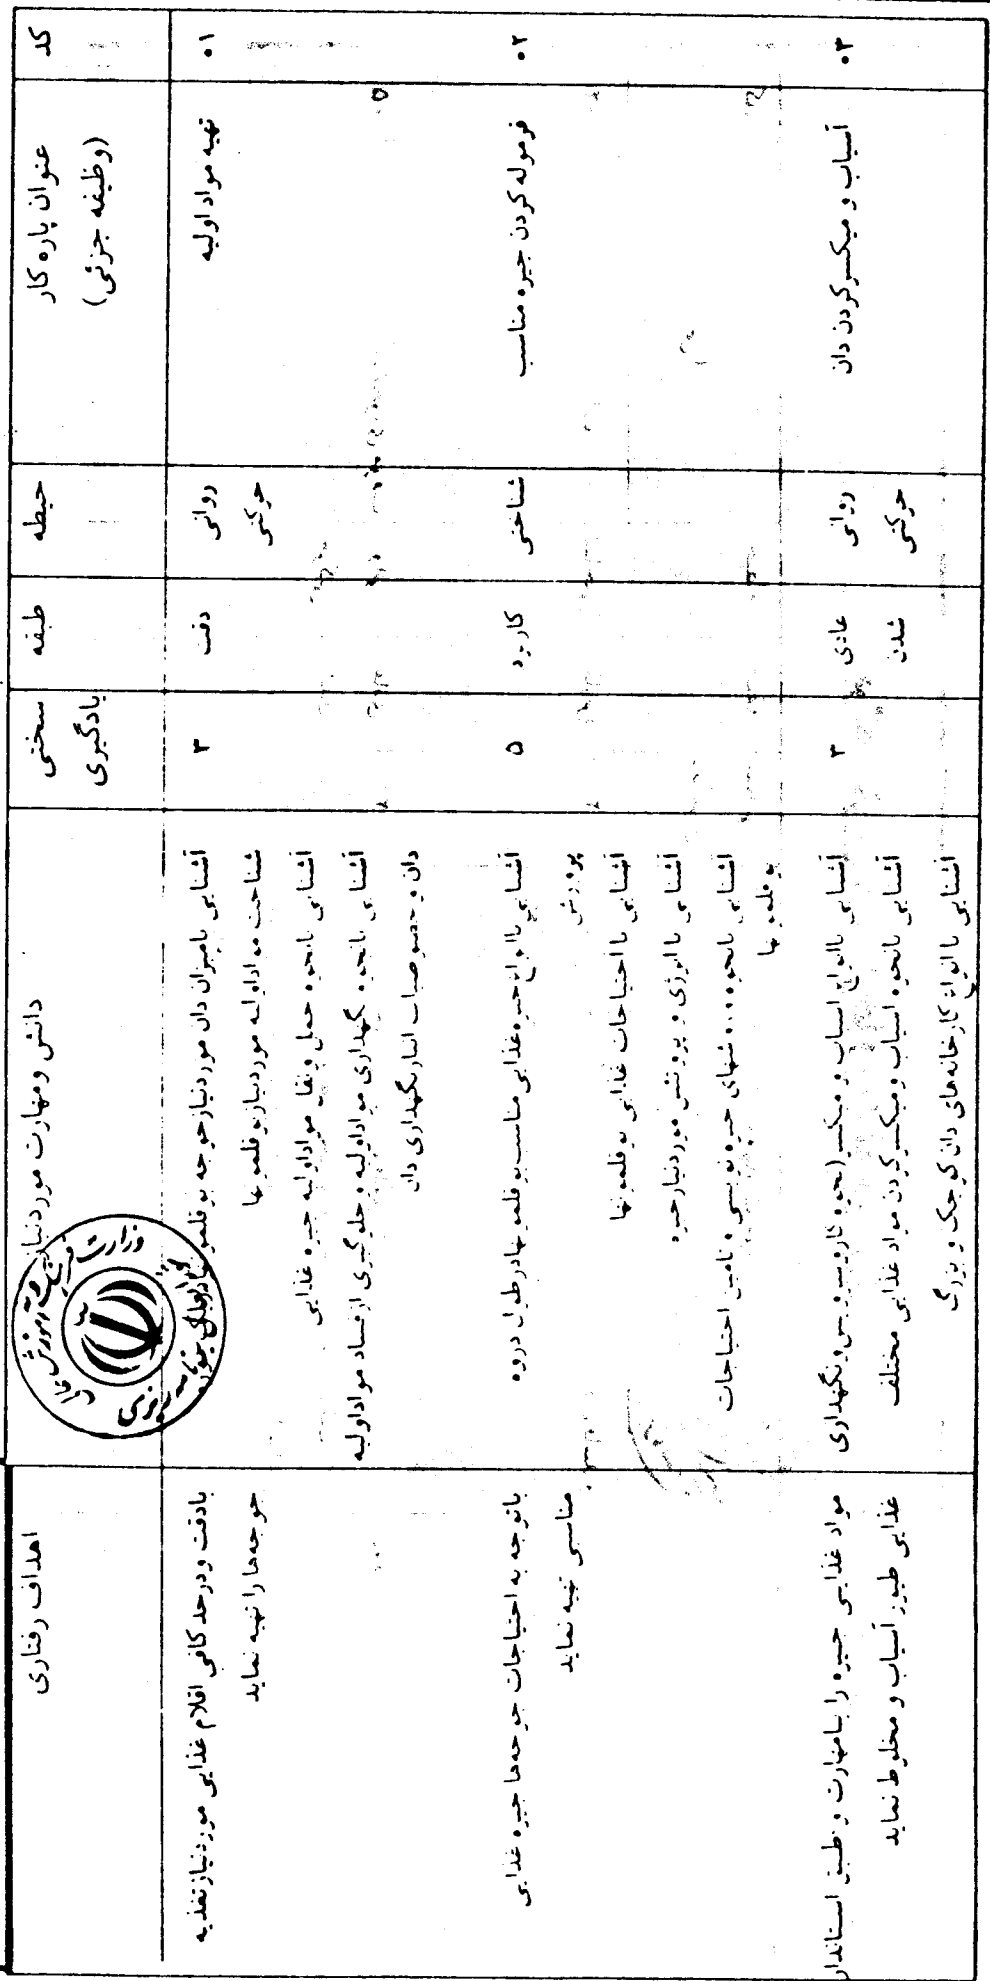 کد
عنوان پاره کار
(وظیفه جزئی)
حیطه
طبقه
سختی
یادگیری
دانش و مهارت مورد نیاز
اهداف رفتاری
۰۱
تهیه مواد اولیه
روانی
حرکتی
دقت
۳
آشنایی بامیزان دان مورد نیاز جوجه بوقلمونها
شناخت مواد اولیه مورد نیاز بوقلمونها
آشنایی بانحوه حمل و نقل مواد اولیه جیره غذایی
آشنایی بانحوه نگهداری مواد اولیه و جلوگیری از فساد مواد اولیه
دان و خصوصیات انبار نگهداری دان
بادقت و در حد کافی اقلام غذایی مورد نیاز تغذیه
جوجه‌ها را تهیه نماید
۰۲
فرموله کردن جیره مناسب
شناختی
کاربرد
۵
آشنایی با انواع جیره غذایی مناسب بوقلمونها در طول دروه
پرورش
آشنایی با احتیاجات غذایی بوقلمونها
آشنایی با انرژی و پروتئین مورد نیاز جیره
آشنایی بانحوه جیره نویسی و تامین احتیاجات
بوقلمونها
باتوجه به احتیاجات جوجه‌ها جیره غذایی
مناسبی تهیه نماید
۰۳
آسیاب و میکسر کردن دان
روانی
حرکتی
عادی
شدن
۳
آشنایی باانواع آسیاب و میکسر (نحوه کار و سرویس و نگهداری
آشنایی بانحوه آسیاب و میکسر کردن مواد غذایی مختلف
آشنایی با انواع کارخانه‌های دان کوچک و بزرگ
مواد غذایی جیره را بامهارت و طبق استاندارد
غذایی طیور آسیاب و مخلوط نماید